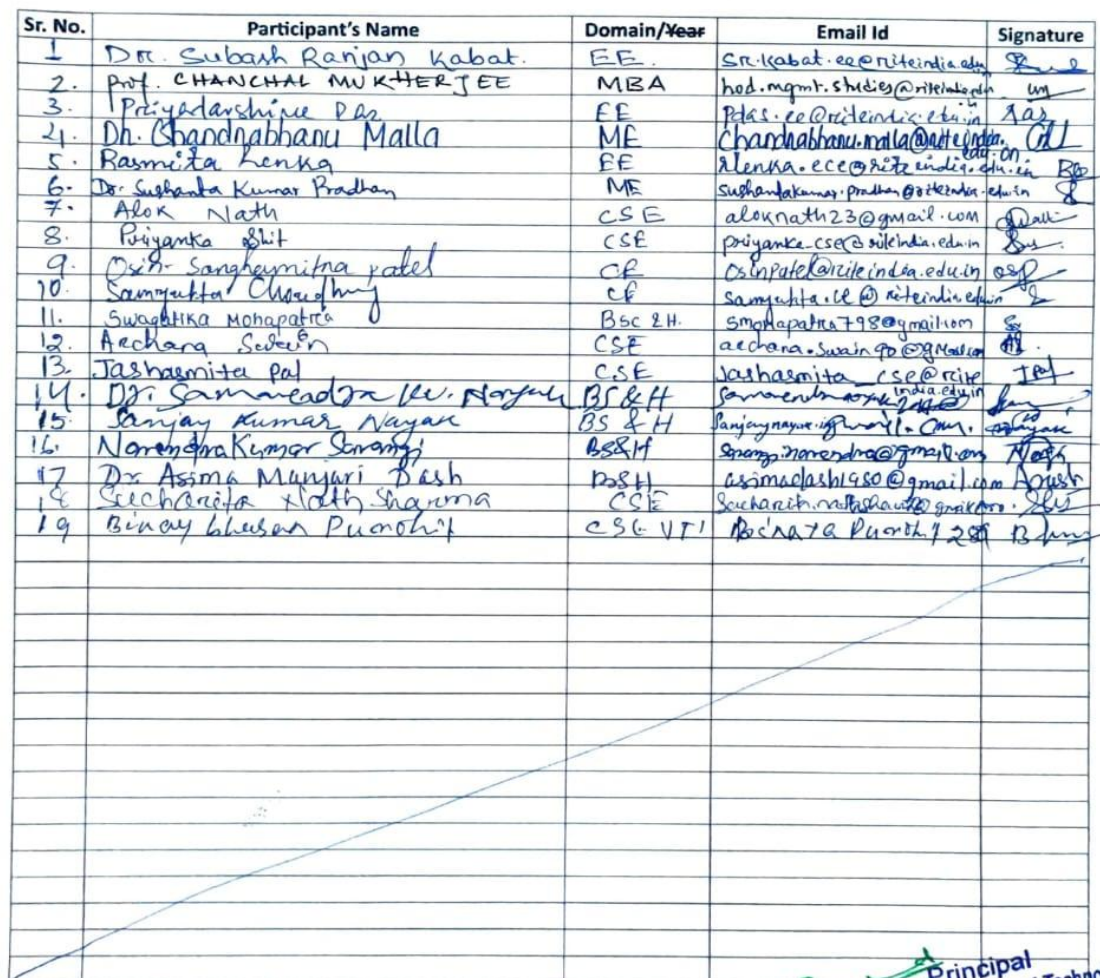 Sr. No. Participant's Name Domain/Year Email Id Signature
1 Dr. Subash Ranjan Kabat. EE. sr.kabat.ee@riteindia.edu
2. Prof. CHANCHAL MUKHERJEE MBA hod.mgmt.studies@riteindia.edu.in
3. Priyadarshinee Das EE Pdas.ee@riteindia.edu.in Das
4. Dr. Chandrabhanu Malla ME Chandrabhanu.malla@riteindia.edu.in
5. Rasmita Lenka EE rlenka.ece@riteindia.edu.in
6. Dr. Sushanta Kumar Pradhan ME sushantakumar.pradhan@riteindia.edu.in
7. Alok Nath CSE aloknath23@gmail.com
8. Priyanka Shit CSE priyanka_cse@riteindia.edu.in
9. Osin Sanghamitra Patel CE osinpatel@riteindia.edu.in
10. Samyukta Choudhury CE samyukta.ce@riteindia.edu.in
11. Swagatika Mohapatra BSC & H. smohapatra798@gmail.com
12. Archana Swain CSE archana.swain90@gmail.com
13. Jashasmita Pal CSE Jashasmita_cse@rite JPal
india.edu.in
14. Dr. Samarendra Ku. BS & H
15. Sanjay Kumar Nayak BS & H Nayak
16. Narendra Kumar Sarangi BS&H sarangi.narendra@gmail.com
17 Dr. Asima Manjari Dash BSH asimadash1980@gmail.com
18 Sucharita Nath Sharma CSE
19 Binay bhusan Purohit CSE VTI
Principal